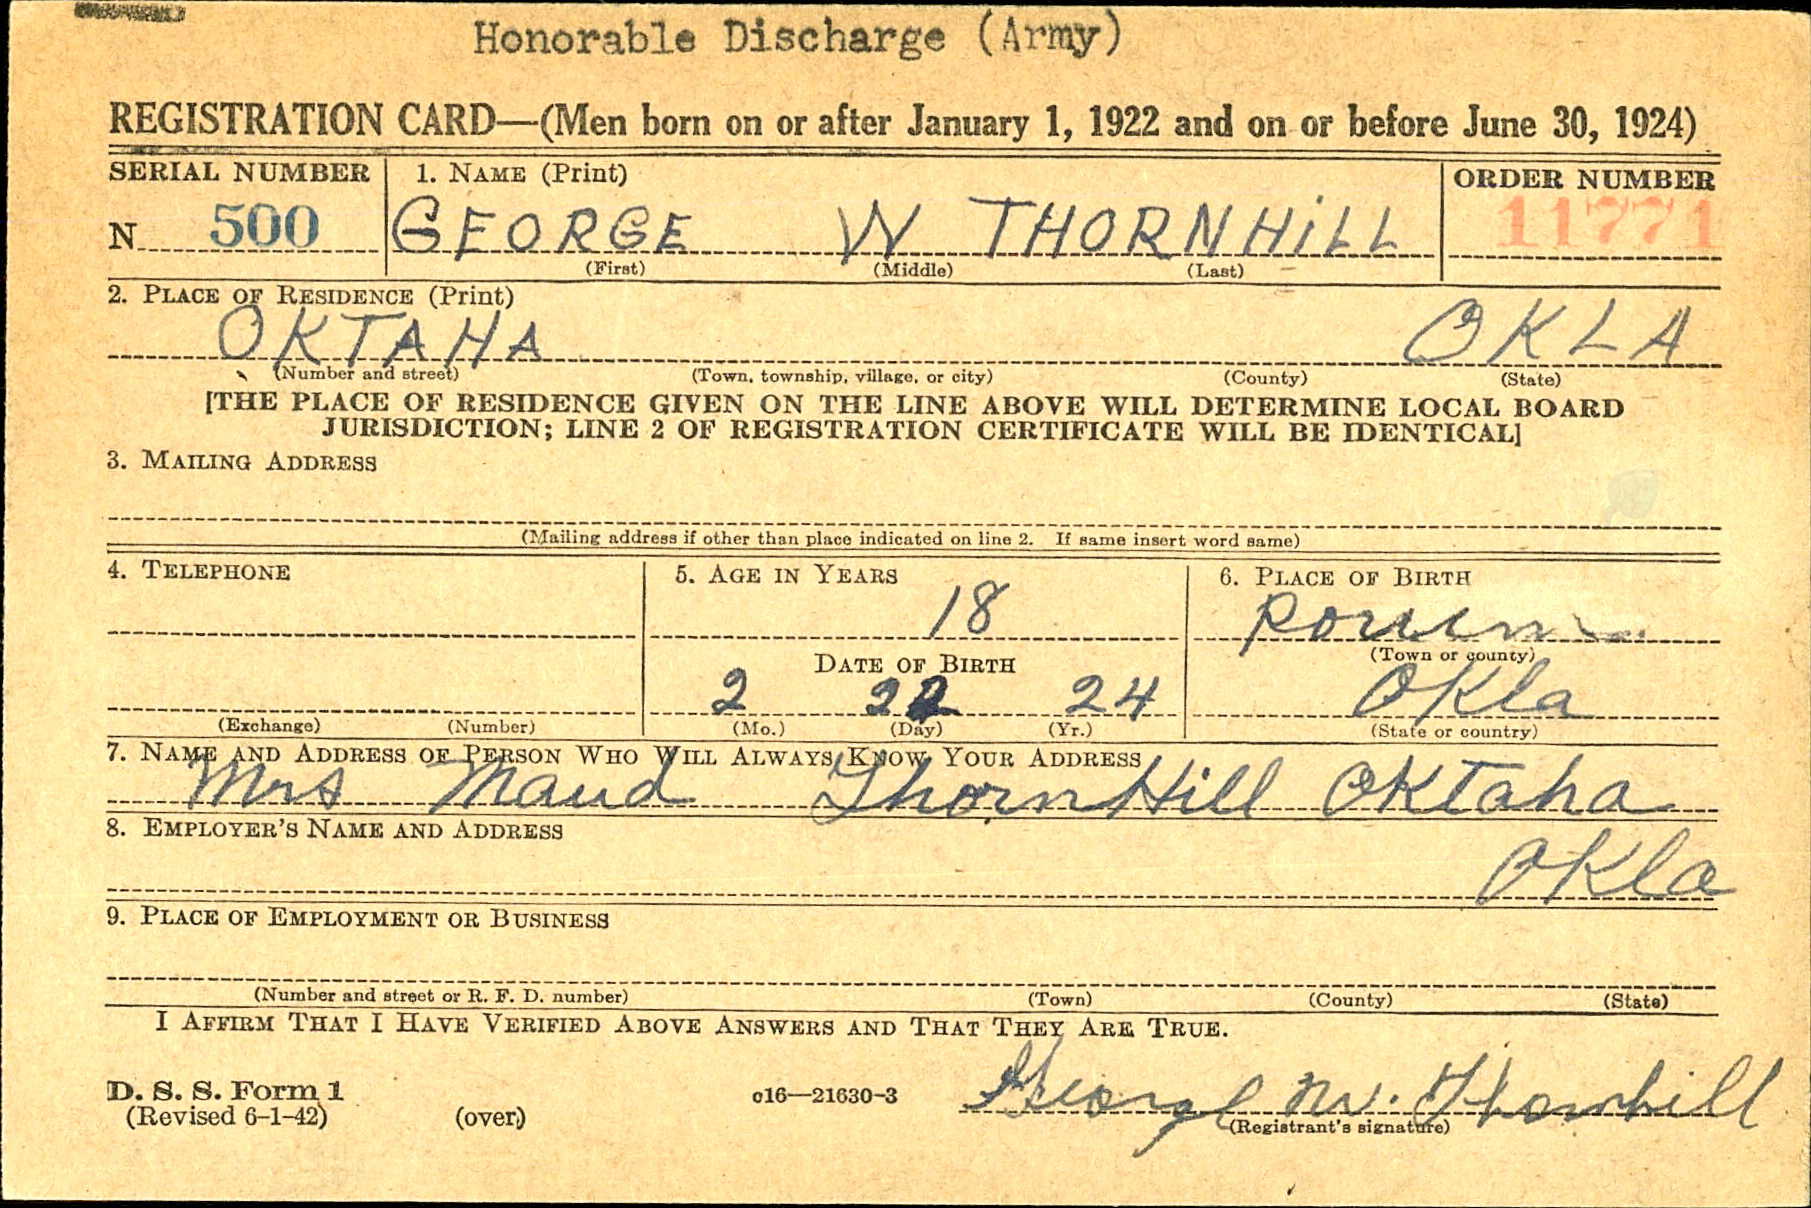 Honorable Discharge (Army)
REGISTRATION CARD—(Men born on or after January 1, 1922 and on or before June 30, 1924)
SERIAL NUMBER 1. NAME (Print) ORDER NUMBER
N 500 GEORGE W THORNHiLL 11771
(First) (Middle) (Last)
2. PLACE OF RESIDENCE (Print)
OKTAHA OKLA
(Number and street) (Town, township, village, or city) (County) (State)
[THE PLACE OF RESIDENCE GIVEN ON THE LINE ABOVE WILL DETERMINE LOCAL BOARD
JURISDICTION; LINE 2 OF REGISTRATION CERTIFICATE WILL BE IDENTICAL]
3. MAILING ADDRESS
(Mailing address if other than place indicated on line 2. If same insert word same)
4. TELEPHONE 5. AGE IN YEARS 6. PLACE OF BIRTH
18
(Town or county)
DATE OF BIRTH
2 22 24 Okla
(Exchange) (Number) (Mo.) (Day) (Yr.) (State or country)
7. NAME AND ADDRESS OF PERSON WHO WILL ALWAYS KNOW YOUR ADDRESS
Mrs Maud ThornHill OKTaha
8. EMPLOYER'S NAME AND ADDRESS
Okla
9. PLACE OF EMPLOYMENT OR BUSINESS
(Number and street or R. F. D. number) (Town) (County) (State)
I AFFIRM THAT I HAVE VERIFIED ABOVE ANSWERS AND THAT THEY ARE TRUE.
D. S. S. Form 1
(Revised 6-1-42) (over) c16—21630-3 George W. Thornhill
(Registrant's signature)